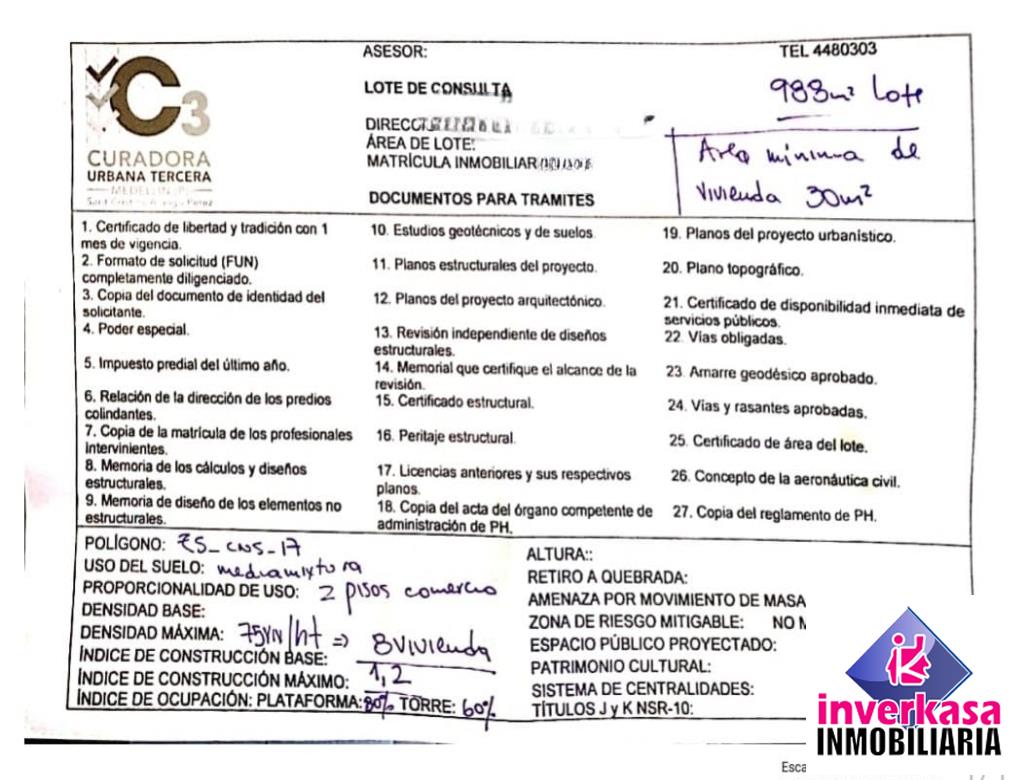 C3
CURADORA
URBANA TERCERA
MEDELLÍN
ASESOR:
TEL 4480303
LOTE DE CONSULTA
988m² Lote
ÁREA DE LOTE:
MATRÍCULA INMOBILIAR
Area minima de
vivienda 30m²
DOCUMENTOS PARA TRAMITES
1. Certificado de libertad y tradición con 1
mes de vigencia.
2. Formato de solicitud (FUN)
completamente diligenciado.
3. Copia del documento de identidad del
solicitante.
4. Poder especial.
5. Impuesto predial del último año.
6. Relación de la dirección de los predios
colindantes.
7. Copia de la matrícula de los profesionales
intervinientes.
8. Memoria de los cálculos y diseños
estructurales.
9. Memoria de diseño de los elementos no
estructurales.
10. Estudios geotécnicos y de suelos.
11. Planos estructurales del proyecto.
12. Planos del proyecto arquitectónico.
13. Revisión independiente de diseños
estructurales.
14. Memorial que certifique el alcance de la
revisión.
15. Certificado estructural.
16. Peritaje estructural.
17. Licencias anteriores y sus respectivos
planos.
18. Copia del acta del órgano competente de
administración de PH.
19. Planos del proyecto urbanístico.
20. Plano topográfico.
21. Certificado de disponibilidad inmediata de
servicios públicos.
22. Vías obligadas.
23. Amarre geodésico aprobado.
24. Vías y rasantes aprobadas.
25. Certificado de área del lote.
26. Concepto de la aeronáutica civil.
27. Copia del reglamento de PH.
POLÍGONO: Z5_CN5_17
USO DEL SUELO: mediamixtura
PROPORCIONALIDAD DE USO: 2 pisos comercio
DENSIDAD BASE:
DENSIDAD MÁXIMA: 75Viv/ht => 8 Vivienda
ÍNDICE DE CONSTRUCCIÓN BASE:
ÍNDICE DE CONSTRUCCIÓN MÁXIMO: 1,2
ÍNDICE DE OCUPACIÓN: PLATAFORMA: 80% TORRE: 60%
ALTURA::
RETIRO A QUEBRADA:
AMENAZA POR MOVIMIENTO DE MASA
ZONA DE RIESGO MITIGABLE: NO
ESPACIO PÚBLICO PROYECTADO:
PATRIMONIO CULTURAL:
SISTEMA DE CENTRALIDADES:
TÍTULOS J y K NSR-10:
inverkasa
INMOBILIARIA
Esca